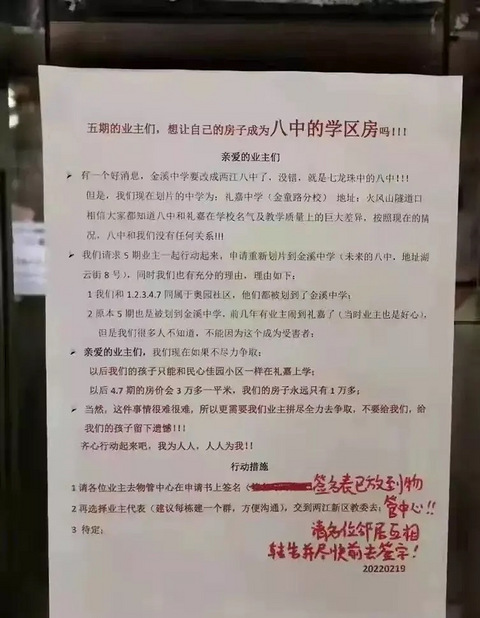 五期的业主们，想让自己的房子成为八中的学区房吗!!!
亲爱的业主们
➢ 有一个好消息，金溪中学要改成两江八中了，没错，就是七龙珠中的八中!!!
但是，我们现在划片的中学为：礼嘉中学（金童路分校） 地址：火风山隧道口
相信大家都知道八中和礼嘉在学校名气及教学质量上的巨大差异，按照现在的情
况，八中和我们没有任何关系!!!
➢ 我们请求5期业主一起行动起来，申请重新划片到金溪中学（未来的八中，地址湖
云街8号），同时我们也有充分的理由，理由如下：
1 我们和1.2.3.4.7同属于奥园社区，他们都被划到了金溪中学；
2 原本5期也是被划到金溪中学，前几年有业主闹到礼嘉了（当时业主也是好心），
但是我们很多人不知道，不能因为这个成为受害者；
➢ 亲爱的业主们，我们现在如果不尽力争取：
以后我们的孩子只能和民心佳园小区一样在礼嘉上学；
以后4.7期的房价会3万多一平米，我们的房子永远只有1万多；
➢ 当然，这件事情很难很难，所以更需要我们业主拼尽全力去争取，不要给我们，给
我们的孩子留下遗憾!!!
齐心行动起来吧，我为人人，人人为我!!
行动措施
1 请各位业主去物管中心在申请书上签名（ 签名表已放到物
2 再选择业主代表（建议每栋建一个群，方便沟通），交到两江新区教委去； 管中心!!
3 待定； 请各位邻居互相
转告并尽快前去签字!
20220219